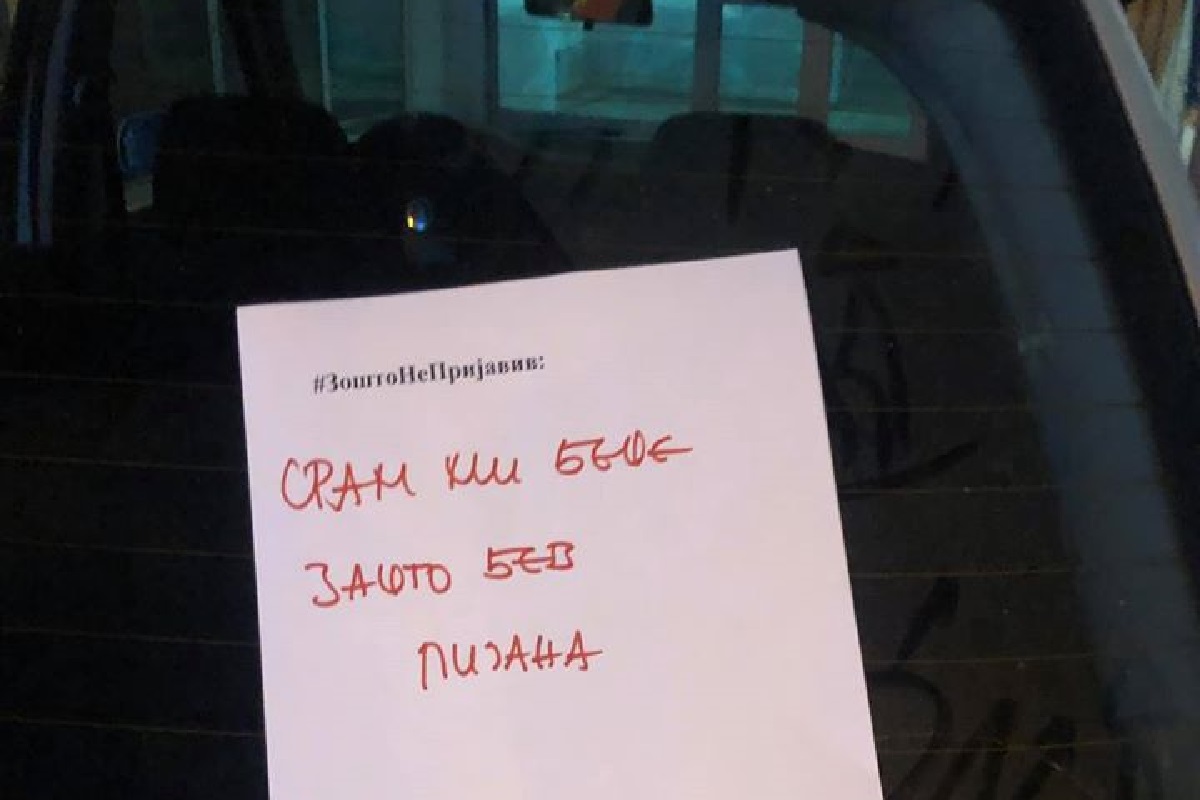 #ЗоштоНеПријавив:
СРАМ МИ БЕШЕ
ЗАШТО БЕВ
ПИЈАНА